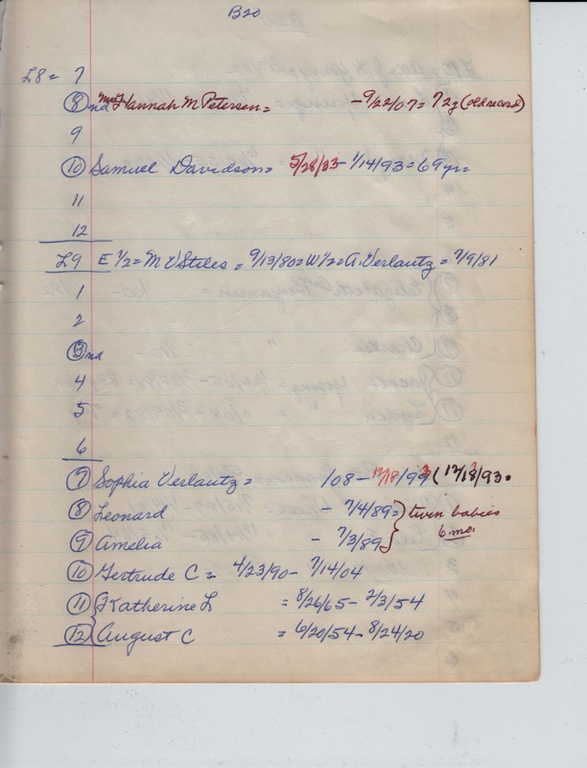 B20
L8 = 7
8 nd Mrs Hannah M Petersen = - 9/22/07 = 72y (old record)
9
10 Samuel Davidson = 5/28/33 - 1/14/93 = 69 yrs
11
12
L9 E 1/2 = M V Stiles = 9/13/80 = W 1/2 = A. Verlautz = 7/9/81
1
2
3 nd
4
5
6
7 Sophia Verlautz = /08 - 12/18/99 (12/18/93.
8 Leonard - 7/4/89 = } twin babies
9 Amelia - 7/3/89 } 6 mo.
10 Gertrude C = 4/23/90 - 7/14/04
11 { Katherine L = 8/26/65 - 2/3/54
12 { August C = 6/20/54 - 8/24/20